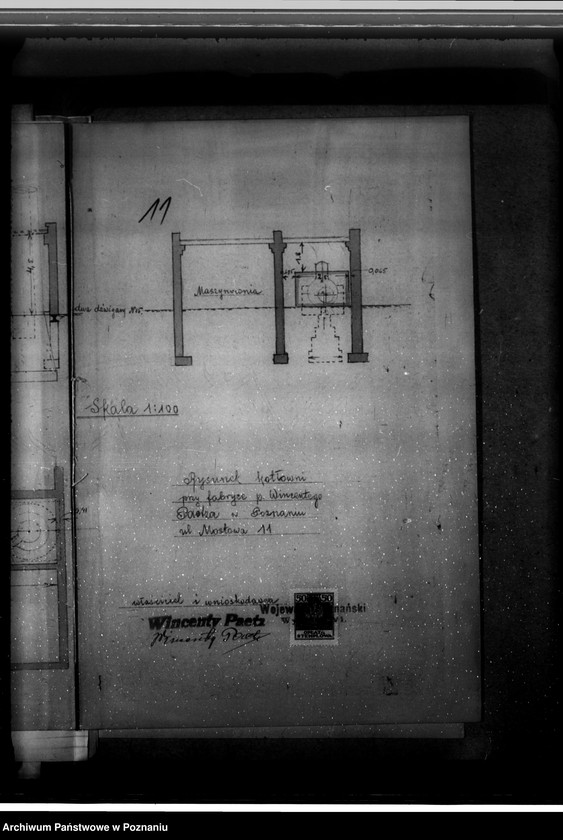 11
1.8
0,065
Maszynownia
4,5
Skala 1:100
Rysunek kotłowni
przy fabryce p. Wincentego
Paetza w Poznaniu
ul Mostowa 11
właściciel i wnioskodawca
Wojew
nański
50 50
Wincenty Paetz
Wincenty Paetz
Archiwum Państwowe w Poznaniu